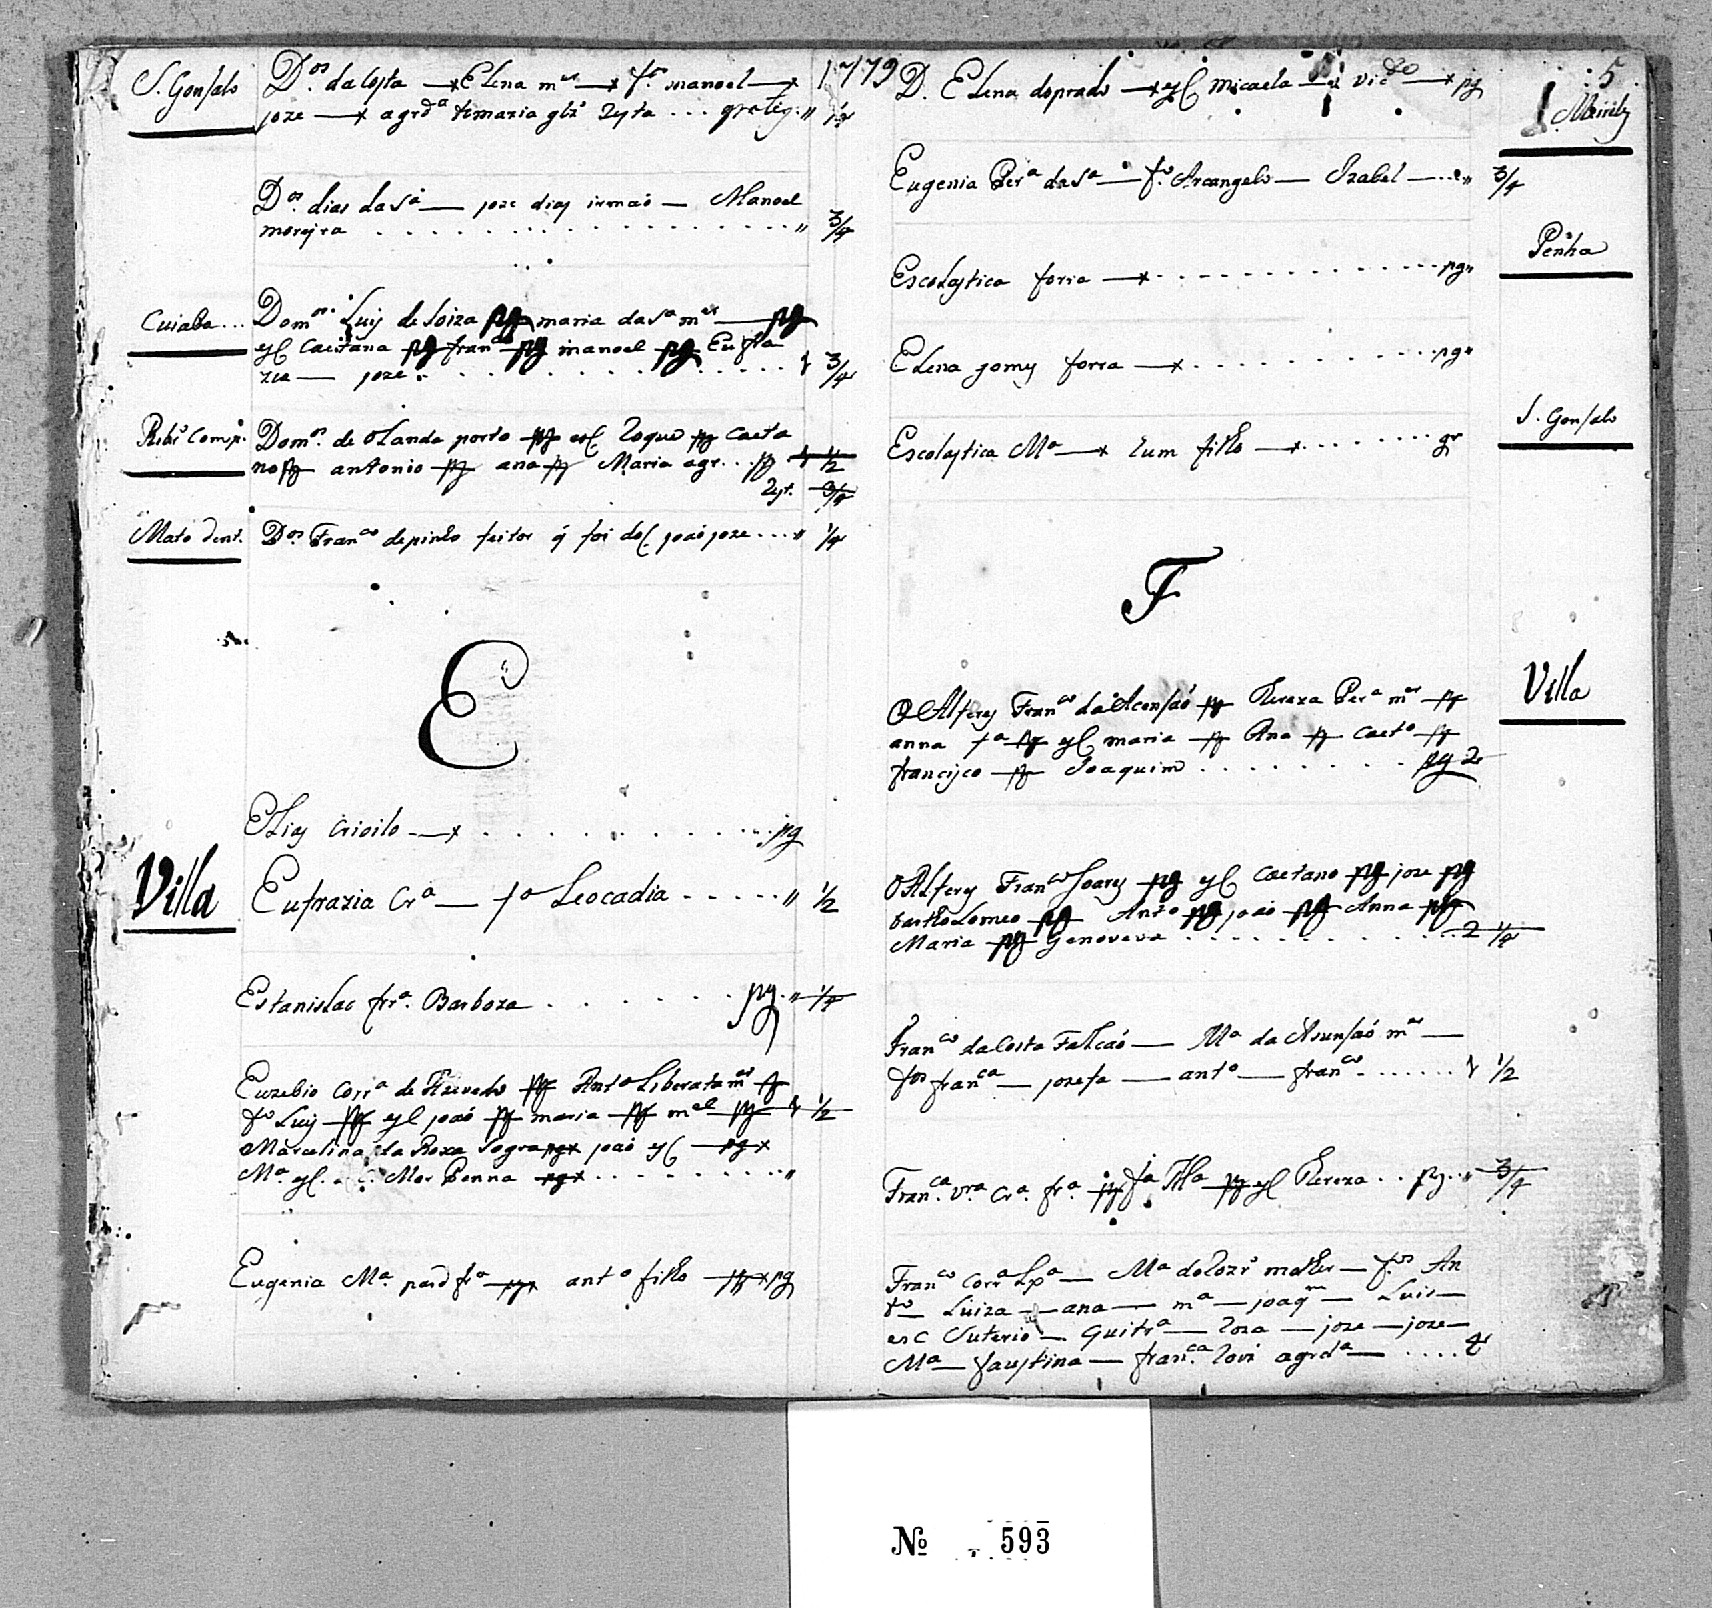 S. Gonsalo
D.os da Costa —x Elena m.er —x f.o manoel —x
joze —x agrd.a
1779
D.os dias da S.a — joze dias irmaõ — Manoel
moreira 3/4
Cuiaba
Dom.os Luis de Soiza pg maria da S.a m.er — pg
esC Caetana pg fran.co pg manoel pg Eufra
zia — joze 1 3/4
Dom.os de Olanda porto pg esC Roque pg Caeta
no pg antonio pg ana pg Maria agr. pg 1 1/2
3/4
Mato dent.
D.os Fran.co de pinho feitor q̃ foi do C. joaõ joze " 1/4
E
Elias Crioilo —x pg
Villa
Eufrazia Cr.a — f.o Leocadia " 1/2
Estanislao frr.a Barboza pg " 1/4
Euzebio Corr.a de Azevedo pg Ant.o Liberata m.er pg
f.o Luis pg esC joaõ pg maria pg m.el pg 1 1/2
Marcelina da Roza Sogra pg x joaõ esC — pg x
M.a esC. Mor Penna pg x "
Eugenia M.a pard fr.a — pg x ant.o filho — pg x pg
5
D. Elena do prado —x esC Micaela — vic.te —x pg
Eugenia Per.a da S.a — f.o Arcangelo — Izabel — " 3/4
Penha
Escolastica forra —x pg "
Elena gomes forra —x pg "
S. Gonsalo
Escolastica M.a —x hum filho —x gr
F
Villa
O Alferes Fran.co da Acensaõ pg Thereza Per.a m.er pg
anna f.a pg esC maria pg Ana pg Caet.o pg
francisco pg Joaquim pg 2
O Alferes Fran.co Soares pg esC Caetano pg joze pg
bartholomeo pg Ant.o pg joaõ pg Anna pg
Maria pg Genoveva 2 1/4
Fran.co da Costa Falcaõ — M.a da Asunsaõ m.er —
f.os fran.ca — jozefa — ant.o — fran.co 1 1/2
Fran.ca Cr.a fr.a pg f.a pg esC Thereza pg " 3/4
Fran.co Corr.a Lp.a — M.a do Rozr.o molher — f.os An
t.o — Luiza — ana — m.a — joaq.m — Luis —
esC Suterio — Quitr.a — Roza — joze — joze —
M.a — faustina — fran.ca agrda —
№ 593